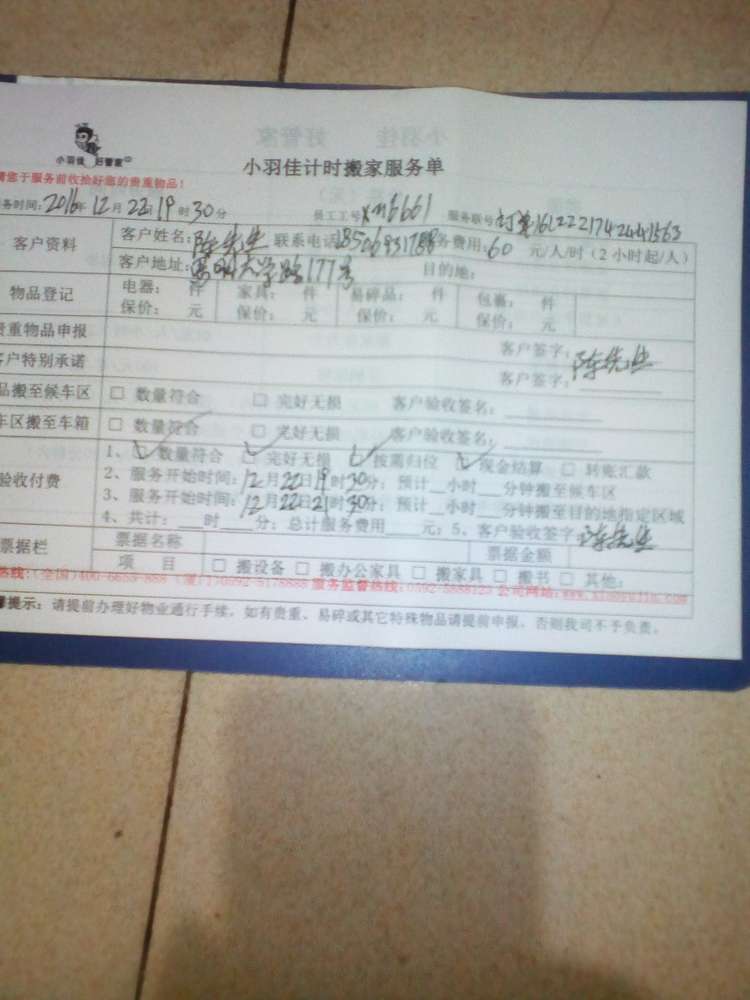 小羽佳 好管家
小羽佳计时搬家服务单
请您于服务前收拾好您的贵重物品！
务时间：2016年12月22日19时30分 员工工号xm6661 服务联号：订单
客户资料 客户姓名：陈先生 联系电话 务费用：60 元/人/时（2小时起/人）
客户地址： 大学路177号 目的地：
物品登记 电器： 件 家具： 件 易碎品： 件 包裹： 件
保价： 元 保价： 元 保价： 元 保价： 元
贵重物品申报 客户签字：陈先生
客户特别承诺 客户签字：
品搬至候车区 □ 数量符合 □ 完好无损 客户验收签名：
车区搬至车箱 □ 数量符合 □ 完好无损 客户验收签名：
验收付费 1、☑ 数量符合 ☑ 完好无损 ☑ 按需归位 ☑ 现金结算 □ 转账汇款
2、服务开始时间：12月22日19时30分；预计__小时__分钟搬至候车区
3、服务开始时间：12月22日21时30分；预计__小时__分钟搬至目的地指定区域
4、共计：__时__分；总计服务费用____元；5、客户验收签字：陈先生
票据栏 票据名称 票据金额
项 目 □ 搬设备 □ 搬办公家具 □ 搬家具 □ 搬书 □ 其他：
热线：（全国）400-6653-888 （厦门）0592-5178888 服务监督热线： 公司网站：
提示：请提前办理好物业通行手续，如有贵重、易碎或其它特殊物品请提前申报，否则我司不予负责。